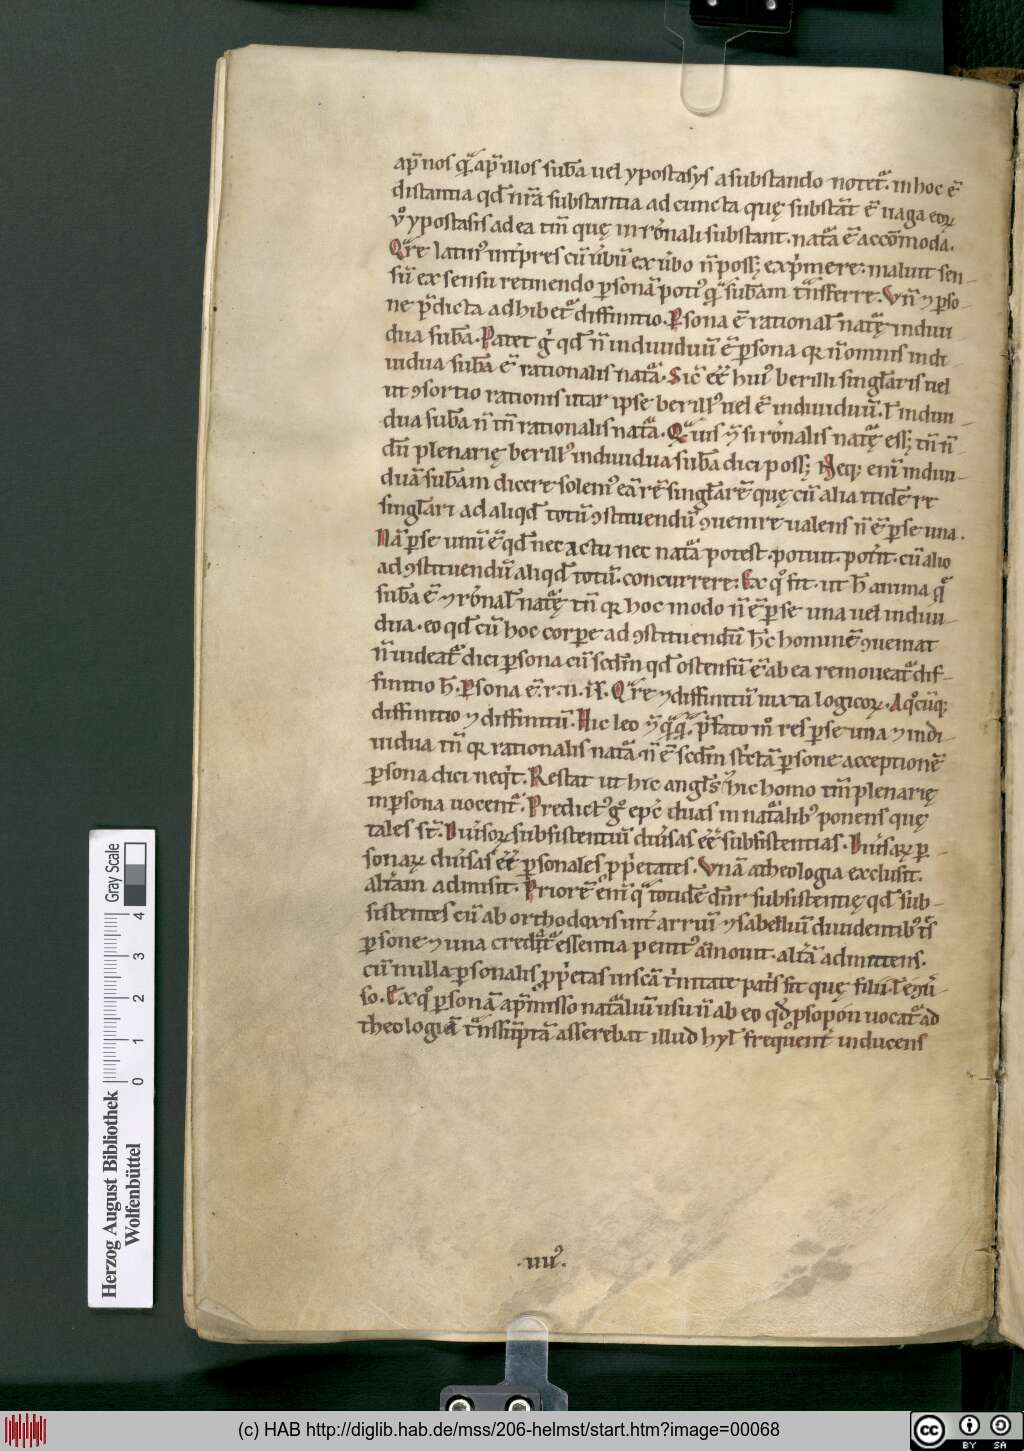 ap̄ nos qͣ̄ ap̄ illos sub̄a uel ypostasys a substando notet᷑. in hoc ē
distantia qđ nr̄a substantia ad cuncta quę substāt ē uaga eoꝝ
ỽo ypostasis ad ea tm̄ quę in rōnali substant. natͣ̄a ē accōmoda.
Qͣre latin⁹ int̄pres cū úbū ex úbo n̄ poss; exp̄mere: maluit sen-
sū ex sensu retinendo ꝑsonā poti⁹ qͣ̄ sub̄am tͣnsferre. Vn̄ ⁊ ꝑso-
ne p̄dicta adhibet᷑ diffinitio. Ꝑsona ē rational̄ natͣ̄ę indiui
dua sub̄a. Patet g̓ qđ n̄ indiuiduū ē ꝑsona qꝛ n̄ omnis indi-
uidua sub̄a ē rationalis natͣ̄a. Sic̄ eē hui⁹ berilli singl̄aris uel
ut ꝯsortio rationis utar ipse berill⁹ uel ē indiuiduū. l̄ indiui-
dua sub̄a n̄ tn̄ rationalis natͣ̄a. Qͣ̄uis ỹ si rōnalis natͣ̄ę ess; tn̄ n̄-
dū plenarię berill⁹ indiuidua sub̄a dici poss; Neq; enī indiui-
duā sub̄am dicere solem⁹ eā rē singl̄arē quę cū alia itidē re
singl̄ari ad aliqđ totū ꝯstituendū ꝯuenire ualens n̄ ē ꝑ se una.
Nā ꝑ se unū ē qđ nec actu nec natͣ̄a potest. potuit. pot̄it. cū alio
ad ꝯstituendū aliqđ totū. concurrere: Ex qͦ fit. ut h̄ anima qͣ̄
sub̄a ē ⁊ rōnal̄ natͣ̄ę tn̄ qꝛ hoc modo n̄ ē ꝑ se una uel indiui-
dua. eo qđ cū hoc corꝑe ad ꝯstituendū h̄c hominē ꝯueniat
n̄ uideat᷑ dici ꝑsona cū scdm̄ qđ ostensū ē ab ea remoueat᷑ dif-
finitio h̄. Ꝑsona ē. r. n. i. s̄. Qͣre ⁊ diffinitū iuxta logicoꝝ. A qͦcūq;
diffinitio ⁊ diffinitū. Hic leo ỹ qͣ̄qͣ̄. p̄fato mͦ res ꝑ se una ⁊ indi-
uidua tn̄ qꝛ rationalis natͣ̄a n̄ ē scdm̄ st̄ctā ꝑsone acceptionē
ꝑsona dici neqͥt. Restat ut hic angl̄s ł hic homo tm̄ plenarię
in ꝑsona uocent᷑. Predict⁹ gͦ ep̄c duas in natͣ̄alib⁹ ponens quę
tales st̄. Diuersoꝝ subsistentiū diúsas eē subsistentias. Diúsaꝝ ꝑ-
sonaꝝ diúsas eē ꝑsonales ꝓp̄etates. Vnā a theologia exclusit.
Alt̄am admisit. Priorē enī qͣ̄ totidē dn̄r subsistentię qđ sub-
sistentes cū ab orthodoxis int̄ arriū ⁊ sabelliū diuidentib⁹ tͥs
ꝑsone ⁊ una credit᷑ essentia penit⁹ āmouit. altͣ̄ā admittens.
cū nulla ꝑsonalis ꝓp̄etas in scā tͥnitate patͥs sit quę filii. l̄ e ꝯúͥ-
so. Ex qͦ ꝑsonā ap̄misso natͣ̄aliū usu n̄ ab eo qđ ꝓsopon uocat᷑ ad
theologiā tͣnssūptā asserebat illud hyl̄ frequent̄ inducens
.uu⁹.
Herzog August Bibliothek
Wolfenbüttel
Gray Scale
0 1 2 3 4
(c) HAB http://diglib.hab.de/mss/206-helmst/start.htm?image=00068
cc BY SA